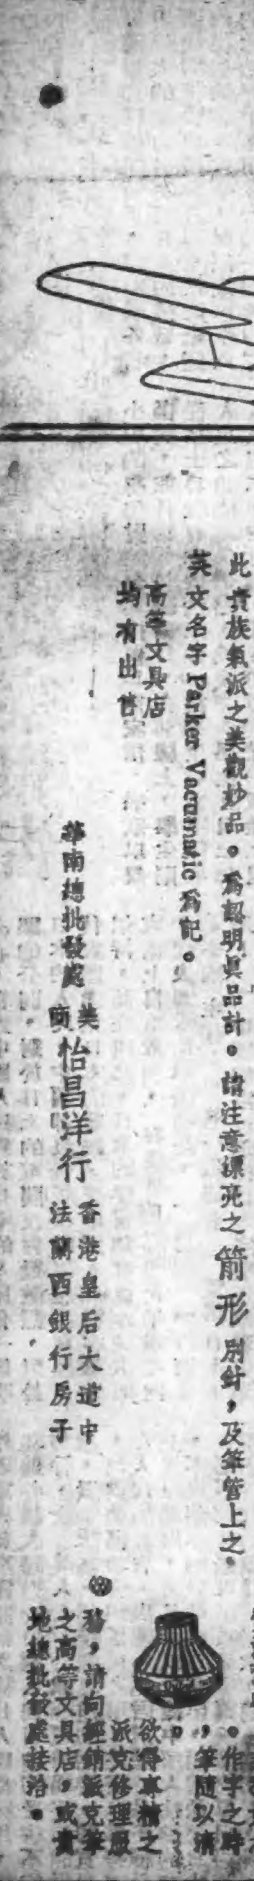 此貴族氣派之美觀妙品。爲認明眞品計。請注意漂亮之箭形別針，及筆管上之。
英文名字Parker Vacumatic爲記。
高等文具店
均有出售
華南總批發處
美商怡昌洋行
香港皇后大道中
法蘭西銀行房子
。作字之時
，筆隨以清
。
欲得專精之
派克修理服
務，請向經銷派克筆
之高等文具店，或貴
地總批發處接洽。